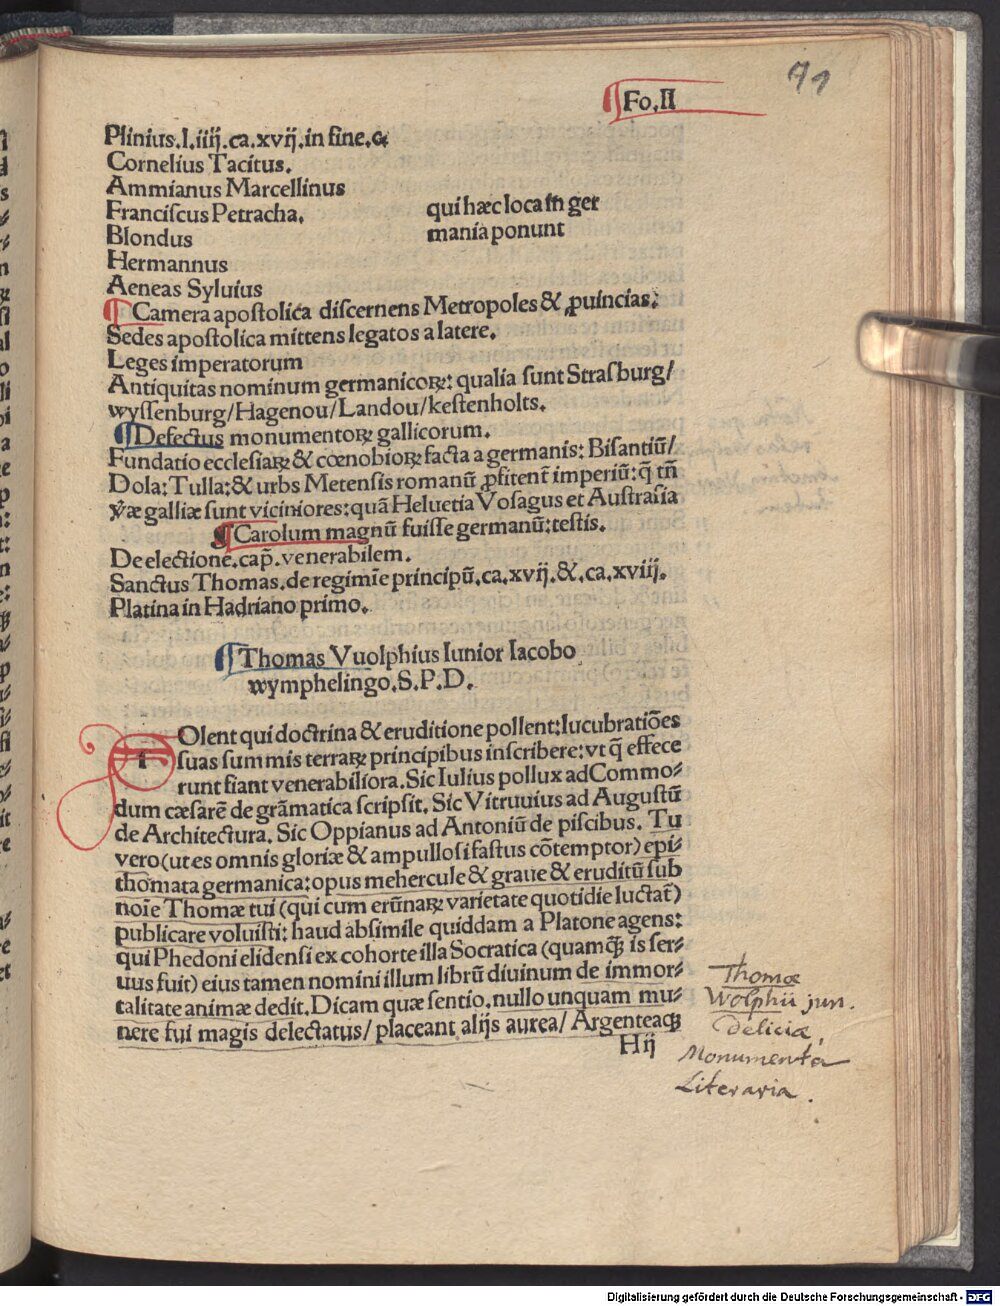 91
¶Fo.II
Plinius.l.iiij.ca.xvij.in fine.&
Cornelius Tacitus.
Ammianus Marcellinus
Franciſcus Petracha.
qui hæc loca in ger
Blondus
mania ponunt
Hermannus
Aeneas Syluius
¶ Camera apoſtolica diſcernens Metropoles & ꝓuincias.
Sedes apoſtolica mittens legatos a latere.
Leges imperatorum
Antiquitas nominum germanicoꝝ: qualia ſunt Straſburg/
wyſſenburg/Hagenou/Landou/keſtenholts.
¶Defectus monumentoꝝ gallicorum.
Fundatio eccleſiaꝝ & cœnobioꝝ facta a germanis: Biſantiū/
Dola: Tulla: & urbs Metenſis romanū ꝓfitent᷑ imperiū: q̄ tn̄
ꝟæ galliæ ſunt viciniores: quā Heluetia Voſagus et Auſtraſia
¶Carolum magnū fuiſſe germanū: teſtis.
De electione.cap̄.venerabilem.
Sanctus Thomas.de regimīe principū.ca.xvij.&.ca.xviij.
Platina in Hadriano primo.
¶Thomas Vuolphius Iunior Iacobo
wymphelingo.S.P.D.
Olent qui doctrina & eruditione pollent: lucubratiōes
ſuas ſummis terraꝝ principibus inſcribere: vt q̄ effece
runt fiant venerabiliora. Sic Iulius pollux ad Commo⸗
dum cæſarē de grāmatica ſcripſit. Sic Vitruuius ad Auguſtū
de Architectura. Sic Oppianus ad Antoniū de piſcibus. Tu
vero (ut es omnis gloriæ & ampulloſi faſtus cōtemptor) epi⸗
thomata germanica: opus mehercule & graue & eruditū ſub
noīe Thomæ tui (qui cum erūnaꝝ varietate quotidie luctat᷑)
publicare voluiſti: haud abſimile quiddam a Platone agens:
qui Phedoni elidenſi ex cohorte illa Socratica (quamꝗ̃ is ſer⸗
uus fuit) eius tamen nomini illum librū diuinum de immor⸗
talitate animæ dedit. Dicam quæ ſentio. nullo unquam mu⸗
nere fui magis delectatus/ placeant alijs aurea/ Argenteaq̧
Hij
Thomæ
Wolphii jun.
Deliciæ,
Monumenta
Literaria.
Digitalisierung gefördert durch die Deutsche Forschungsgemeinschaft - DFG